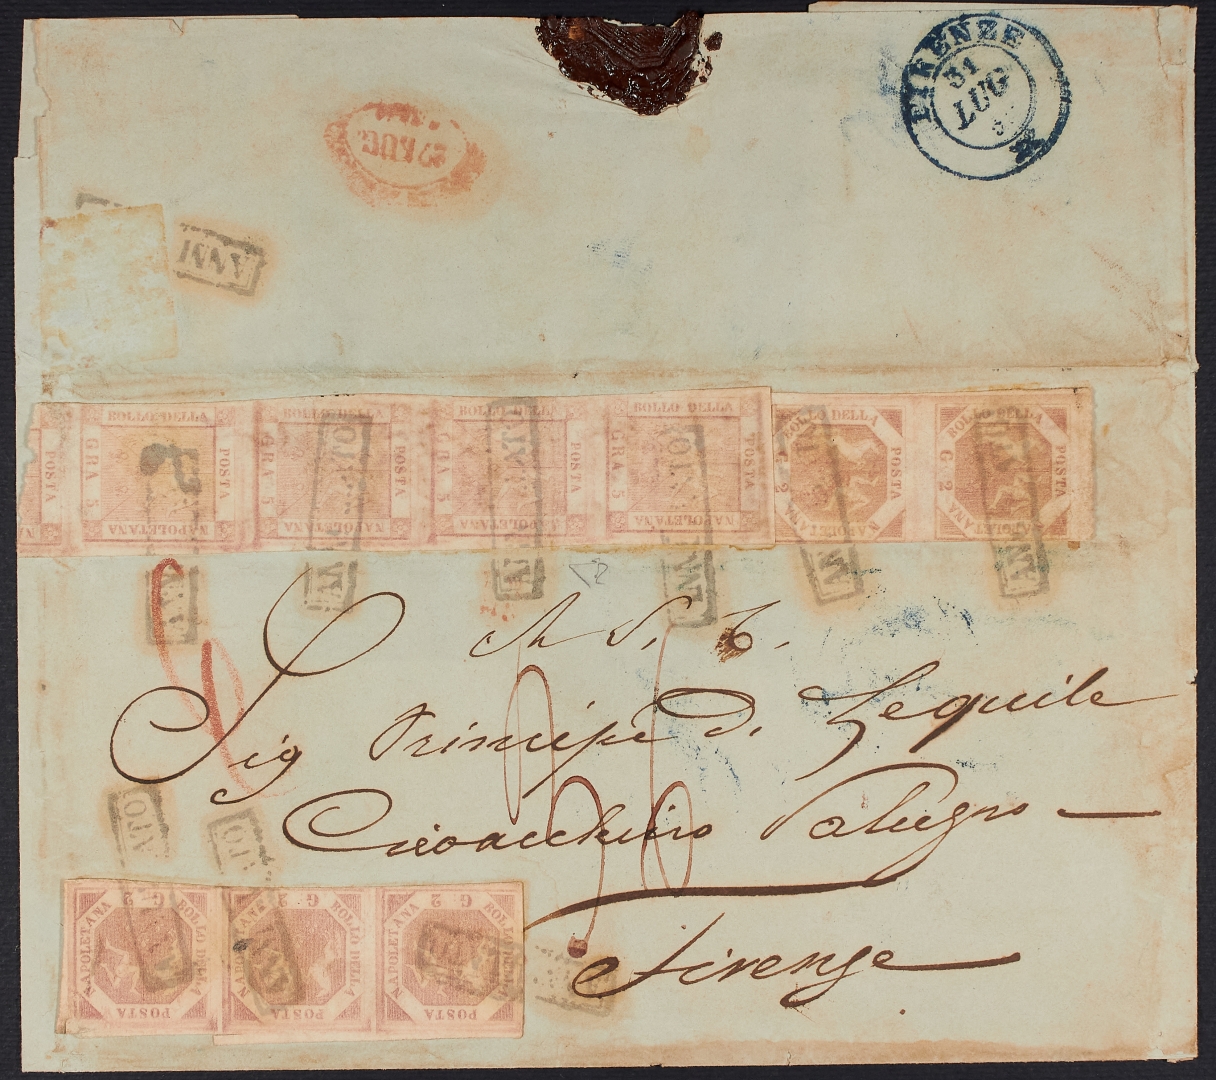 FIRENZE
31
LUG
LUG
ANN
BOLLO DELLA
POSTA
NAPOLETANA
GRA 5
BOLLO DELLA
POSTA
NAPOLETANA
GRA 5
BOLLO DELLA
POSTA
NAPOLETANA
GRA 5
BOLLO DELLA
POSTA
NAPOLETANA
GRA 5
POSTA
BOLLO DELLA
POSTA
NAPOLETANA
G. 2
BOLLO DELLA
POSTA
NAPOLETANA
G. 2
A S. E.
Sig Principe di Sequile
Gioacchino
Firenze
BOLLO DELLA
POSTA
NAPOLETANA
G. 2
BOLLO DELLA
POSTA
NAPOLETANA
G. 2
BOLLO DELLA
POSTA
NAPOLETANA
G. 2